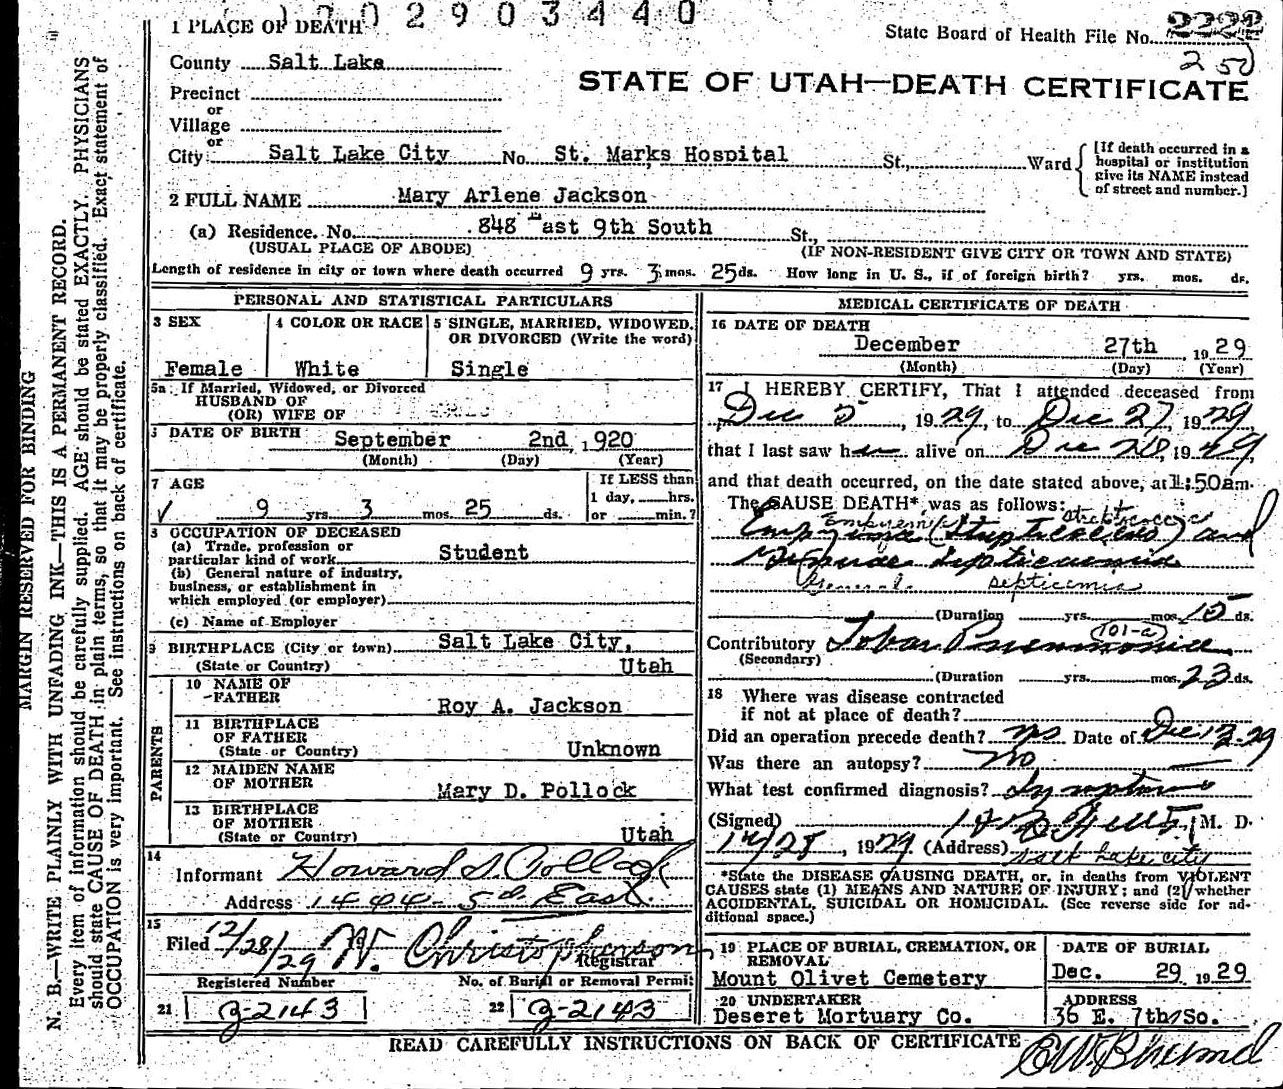 202903440
1 PLACE OF DEATH
State Board of Health File No. 2222
250
County Salt Lake
STATE OF UTAH—DEATH CERTIFICATE
Precinct
or
Village
or
City Salt Lake City No. St. Marks Hospital St., Ward
[If death occurred in a hospital or institution give its NAME instead of street and number.]
2 FULL NAME Mary Arlene Jackson
(a) Residence. No. 848 East 9th South St.,
(USUAL PLACE OF ABODE) (IF NON-RESIDENT GIVE CITY OR TOWN AND STATE)
Length of residence in city or town where death occurred 9 yrs. 3 mos. 25 ds. How long in U. S., if of foreign birth? yrs. mos. ds.
PERSONAL AND STATISTICAL PARTICULARS
3 SEX
Female
4 COLOR OR RACE
White
5 SINGLE, MARRIED, WIDOWED, OR DIVORCED (Write the word)
Single
5a If Married, Widowed, or Divorced
HUSBAND OF
(OR) WIFE OF
DATE OF BIRTH September 2nd, 1920
(Month) (Day) (Year)
7 AGE
9 yrs. 3 mos. 25 ds.
If LESS than
1 day, hrs.
or min.?
8 OCCUPATION OF DECEASED
(a) Trade, profession or
particular kind of work Student
(b) General nature of industry,
business, or establishment in
which employed (or employer)
(c) Name of Employer
9 BIRTHPLACE (City or town) Salt Lake City,
(State or Country) Utah
PARENTS
10 NAME OF
FATHER Roy A. Jackson
11 BIRTHPLACE
OF FATHER
(State or Country) Unknown
12 MAIDEN NAME
OF MOTHER Mary D. Pollock
13 BIRTHPLACE
OF MOTHER
(State or Country) Utah
14
Informant Howard S. Pollock
Address 1444 5th East.
15
Filed 12/28/29 W. Christopherson
Registrar
Registered Number No. of Burial or Removal Permit
21 G-2143 22 G-2143
MEDICAL CERTIFICATE OF DEATH
16 DATE OF DEATH
December 27th, 1929
(Month) (Day) (Year)
17 I HEREBY CERTIFY, That I attended deceased from
Dec 5, 1929, to Dec 27, 1929
that I last saw her alive on Dec 1929
and that death occurred, on the date stated above, at 1:50am.
The CAUSE DEATH* was as follows:
Empyema streptococcic
Empyema and
Septicaemia
General septicemia
(Duration yrs. mos. 15 ds.
101-a
Contributory Lobar Pneumonia.
(Secondary)
(Duration yrs. mos. 23 ds.
18 Where was disease contracted
if not at place of death?
Did an operation precede death? yes Date of Dec
Was there an autopsy? no
What test confirmed diagnosis? Symptoms
(Signed) M. D.
12/28, 1929 (Address) Salt Lake City
*State the DISEASE CAUSING DEATH, or, in deaths from VIOLENT
CAUSES state (1) MEANS AND NATURE OF INJURY; and (2) whether
ACCIDENTAL, SUICIDAL OR HOMICIDAL. (See reverse side for ad-
ditional space.)
19 PLACE OF BURIAL, CREMATION, OR
REMOVAL
Mount Olivet Cemetery
DATE OF BURIAL
Dec. 29 1929
20 UNDERTAKER
Deseret Mortuary Co.
ADDRESS
36 E. 7th So.
READ CAREFULLY INSTRUCTIONS ON BACK OF CERTIFICATE
MARGIN RESERVED FOR BINDING
N. B.—WRITE PLAINLY WITH UNFADING INK—THIS IS A PERMANENT RECORD.
Every item of information should be carefully supplied. AGE should be stated EXACTLY. PHYSICIANS
should state CAUSE OF DEATH in plain terms, so that it may be properly classified. Exact statement of
OCCUPATION is very important. See instructions on back of certificate.